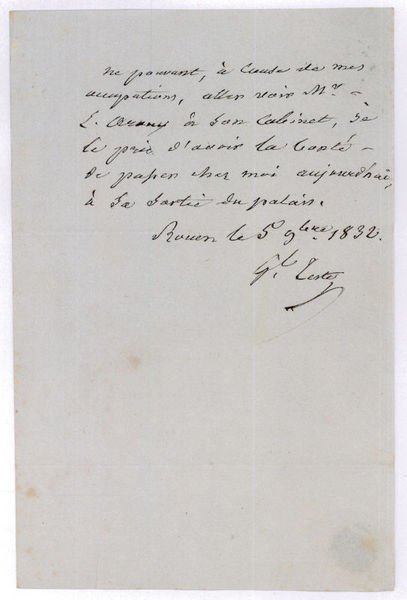 ne pouvant, à Cause de mes
occupations, aller voir Mr. –
L. à Son Cabinet, Je
le prie d'avoir la bonté –
de passer chez moi aujourdhui,
à Sa Sortie du palais.
Rouen le 5 9bre. 1832.
Gl Teste